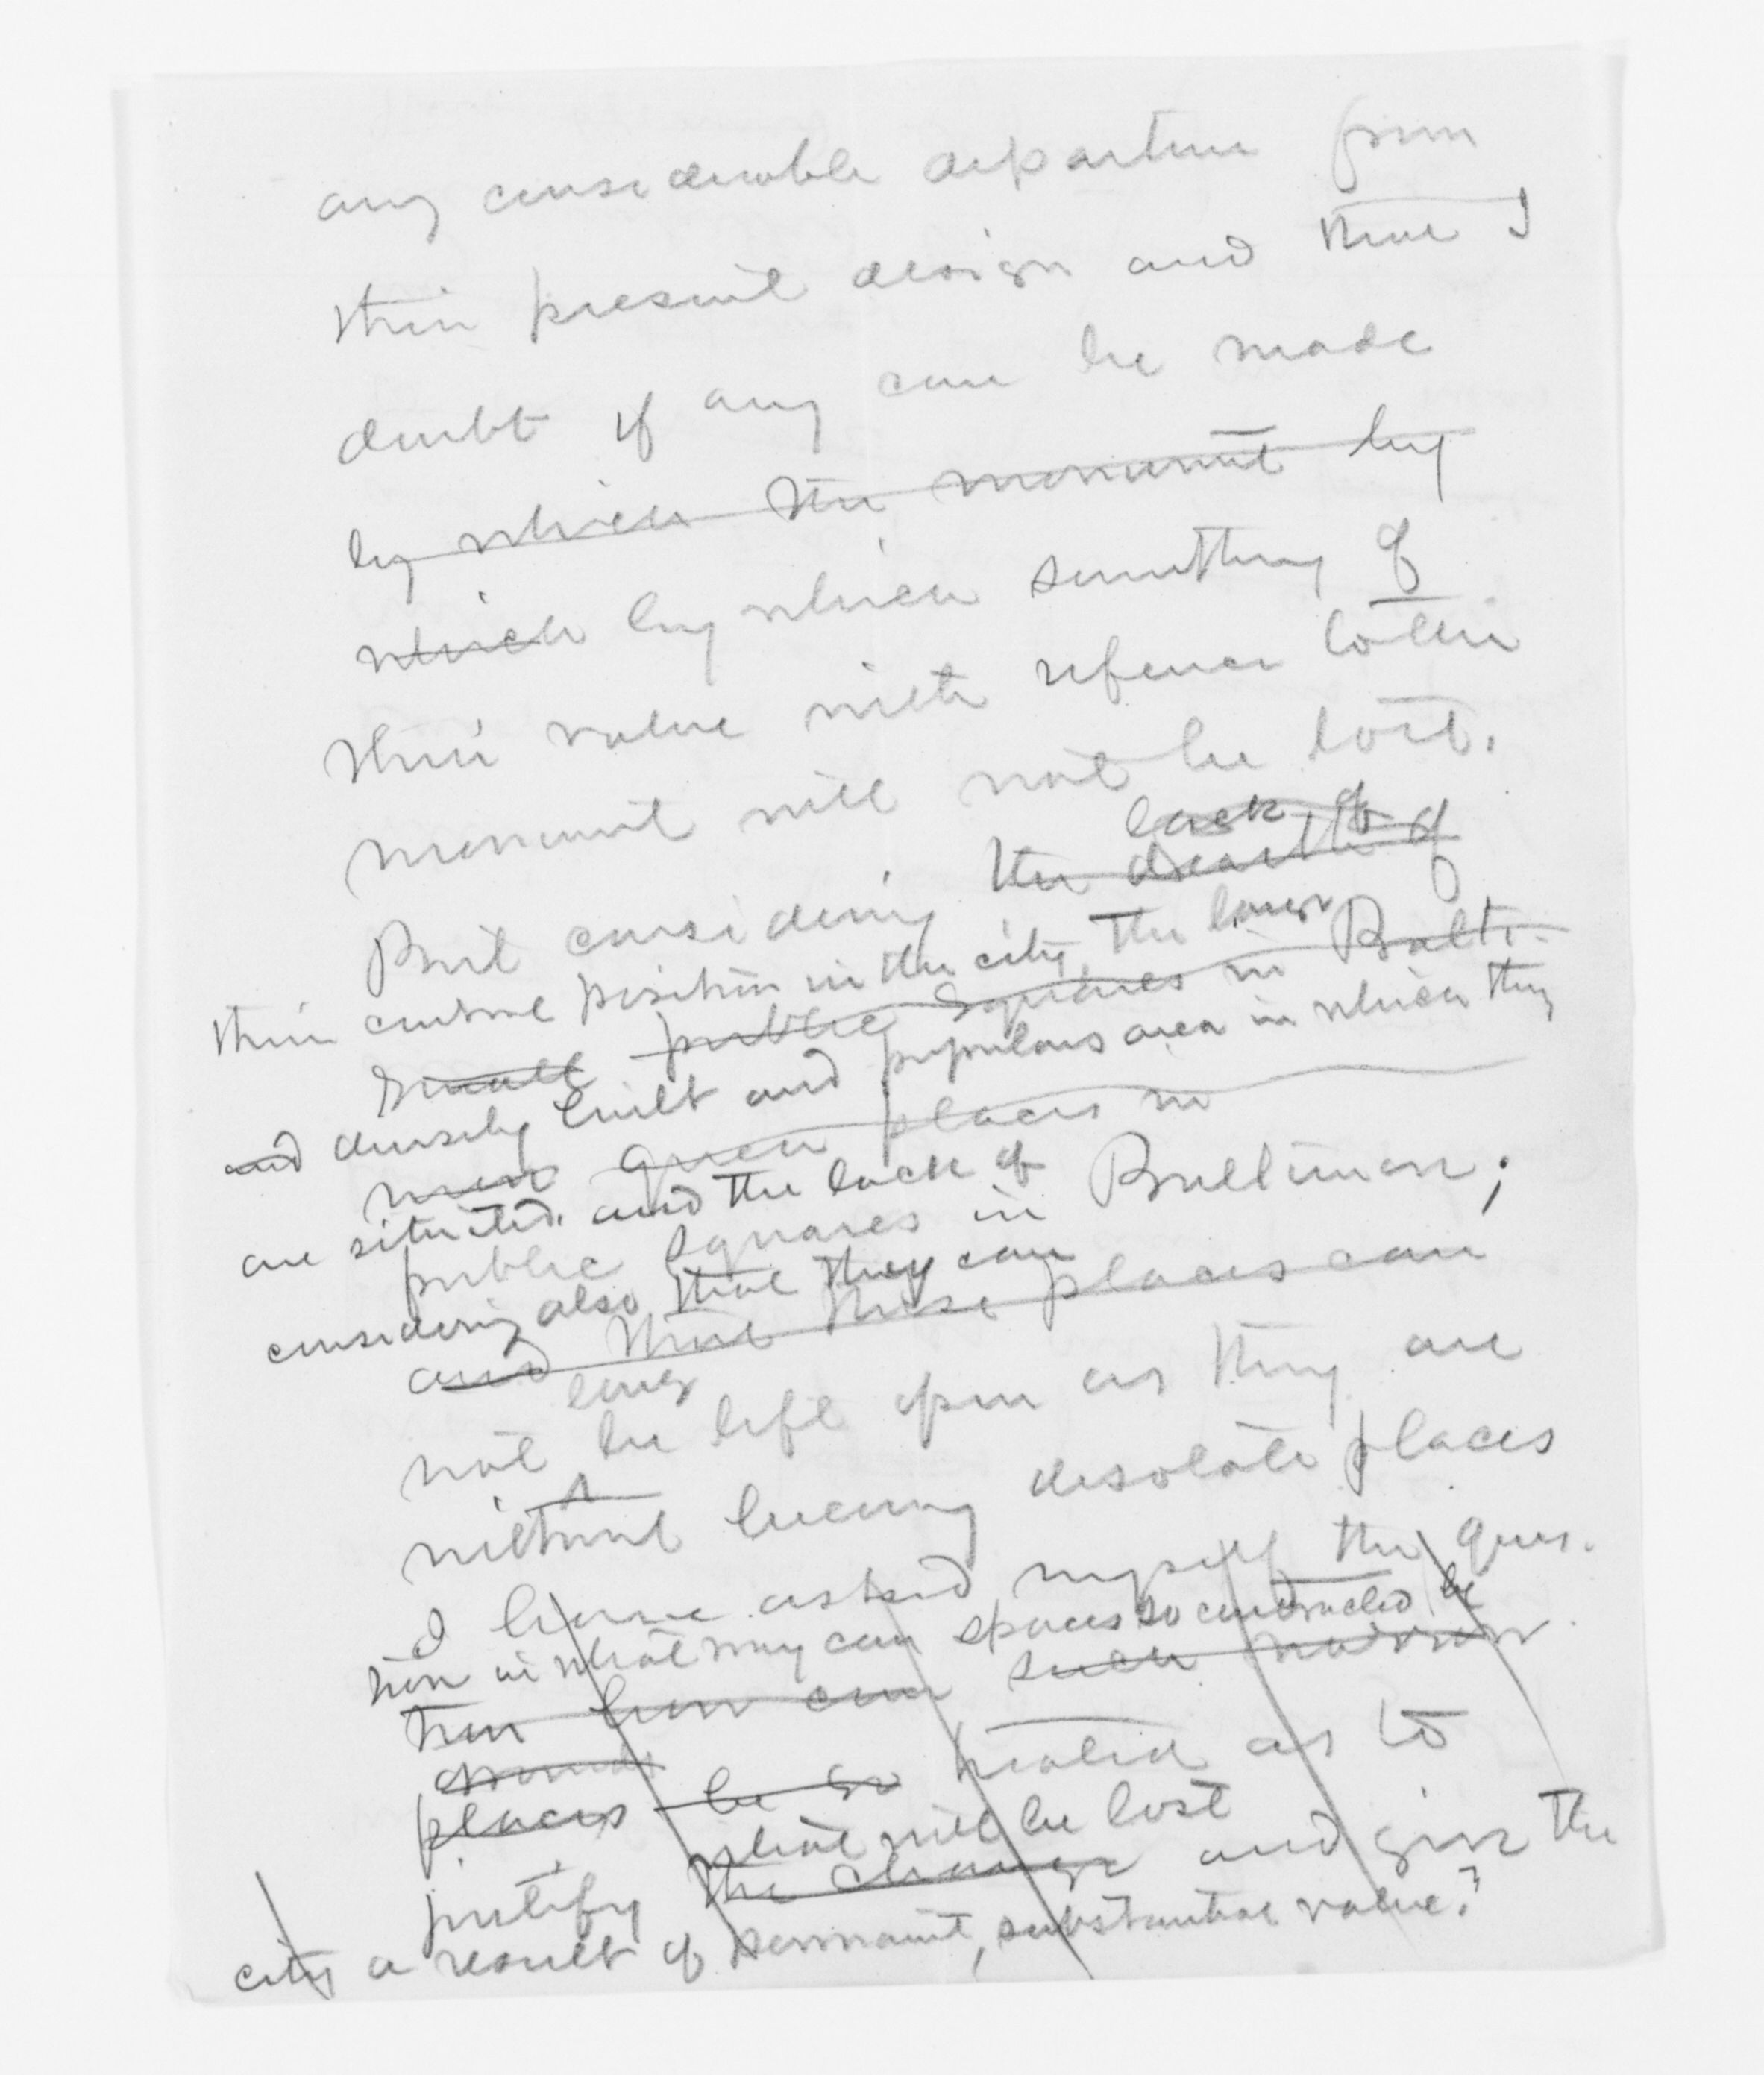 any considerable departure from
their present design and that I
doubt if any can be made
by which the monument by
which by which something of
their value with reference to the
monument will not be lost.
lack of
But considering the dearth of
their central position in the city, the large
small public squares in Balti-
and densely built and populous area in which they
green places in
are situated, and the lack of
public squares in Baltimore;
considering also that they can
and that these places can
long
not be left open as they are
without becoming desolate places
I have asked myself the ques-
tion in what way can spaces so contracted be
tion how can such narrow
places be so treated as to
what will be lost
justify the change and give the
city a result of permanent, substantial value?